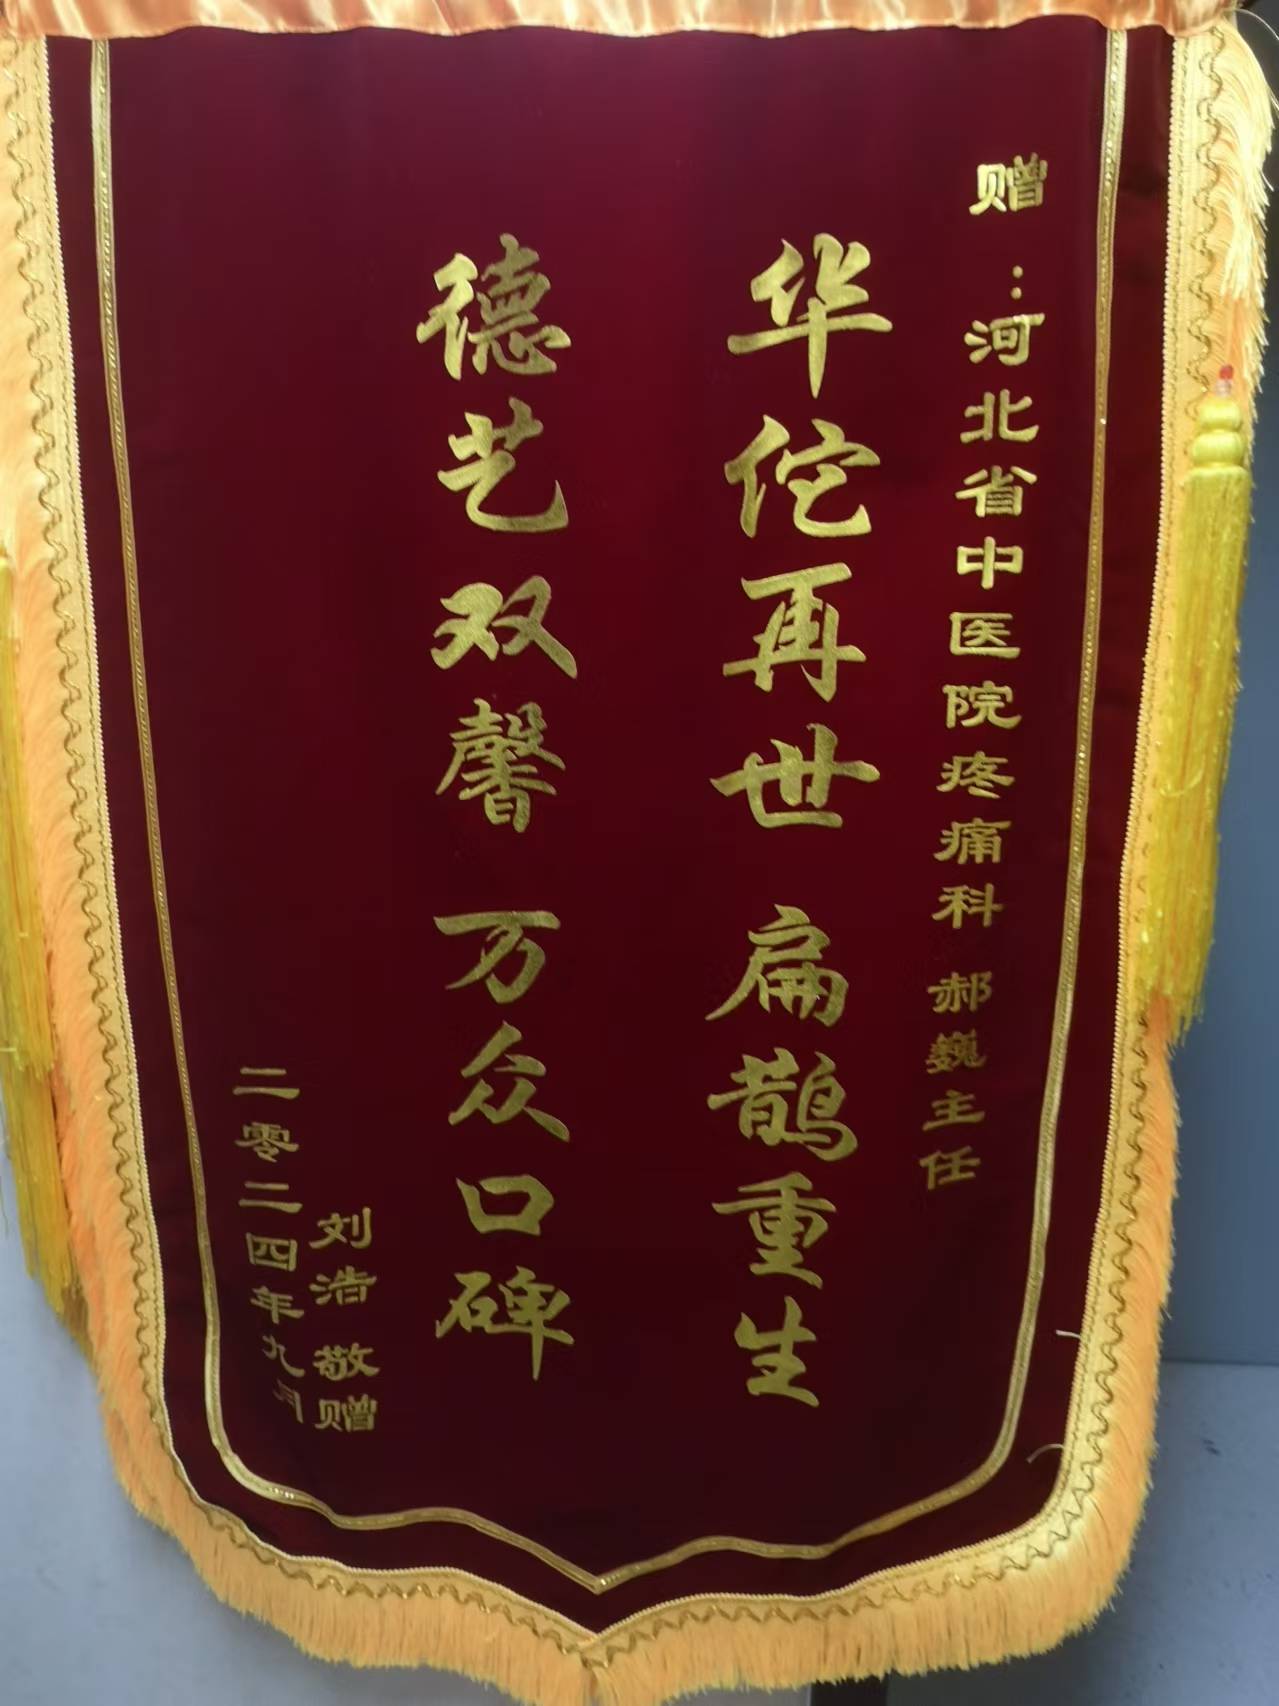 赠：河北省中医院疼痛科 郝巍主任
华佗再世 扁鹊重生
德艺双馨 万众口碑
刘浩 敬赠
二零二四年九月